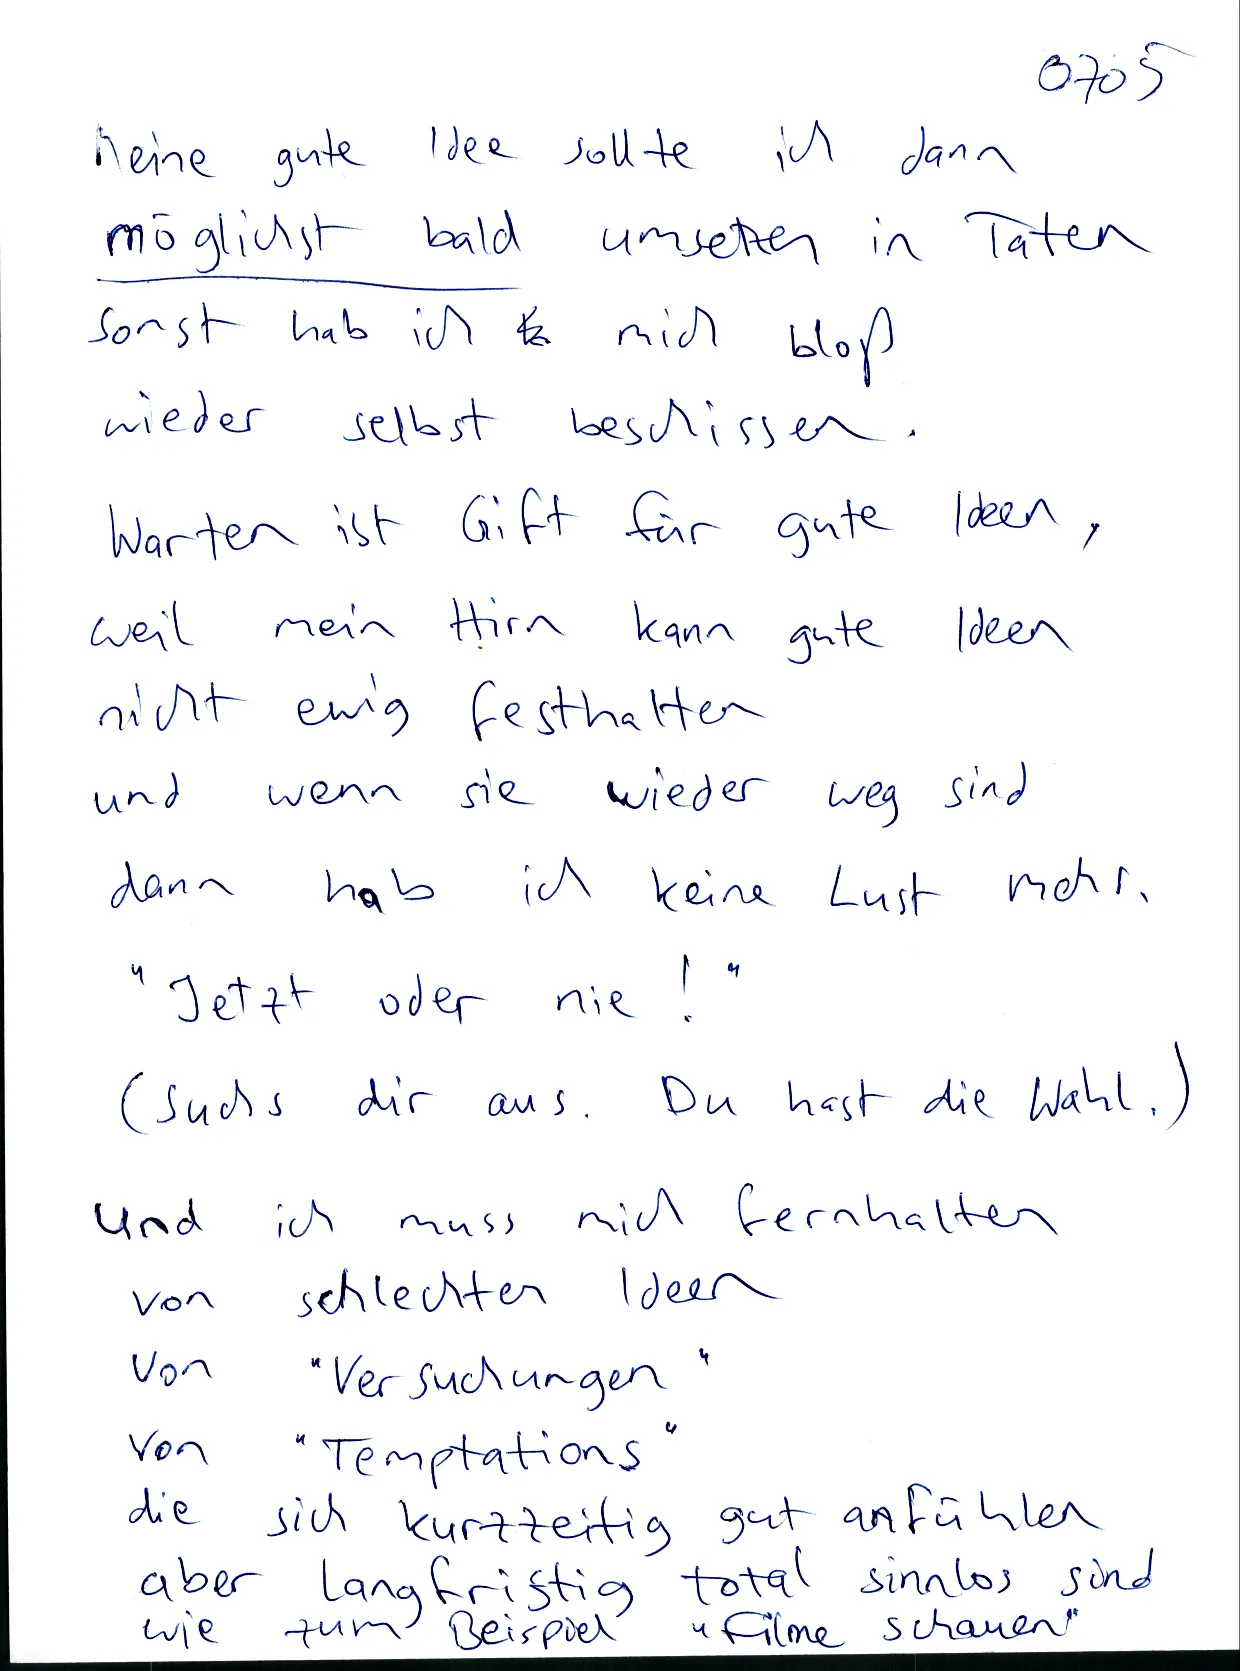 0705
meine gute Idee sollte ich dann
möglichst bald umsetzen in Taten
sonst hab ich mich bloß
wieder selbst beschissen.
Warten ist Gift für gute Ideen,
weil mein Hirn kann gute Ideen
nicht ewig festhalten
und wenn sie wieder weg sind
dann hab ich keine Lust mehr.
"Jetzt oder nie!"
(suchs dir aus. Du hast die Wahl.)
und ich muss mich fernhalten
von schlechten Ideen
von "Versuchungen"
von "Temptations"
die sich kurzzeitig gut anfühlen
aber langfristig total sinnlos sind
wie zum Beispiel "Filme schauen"